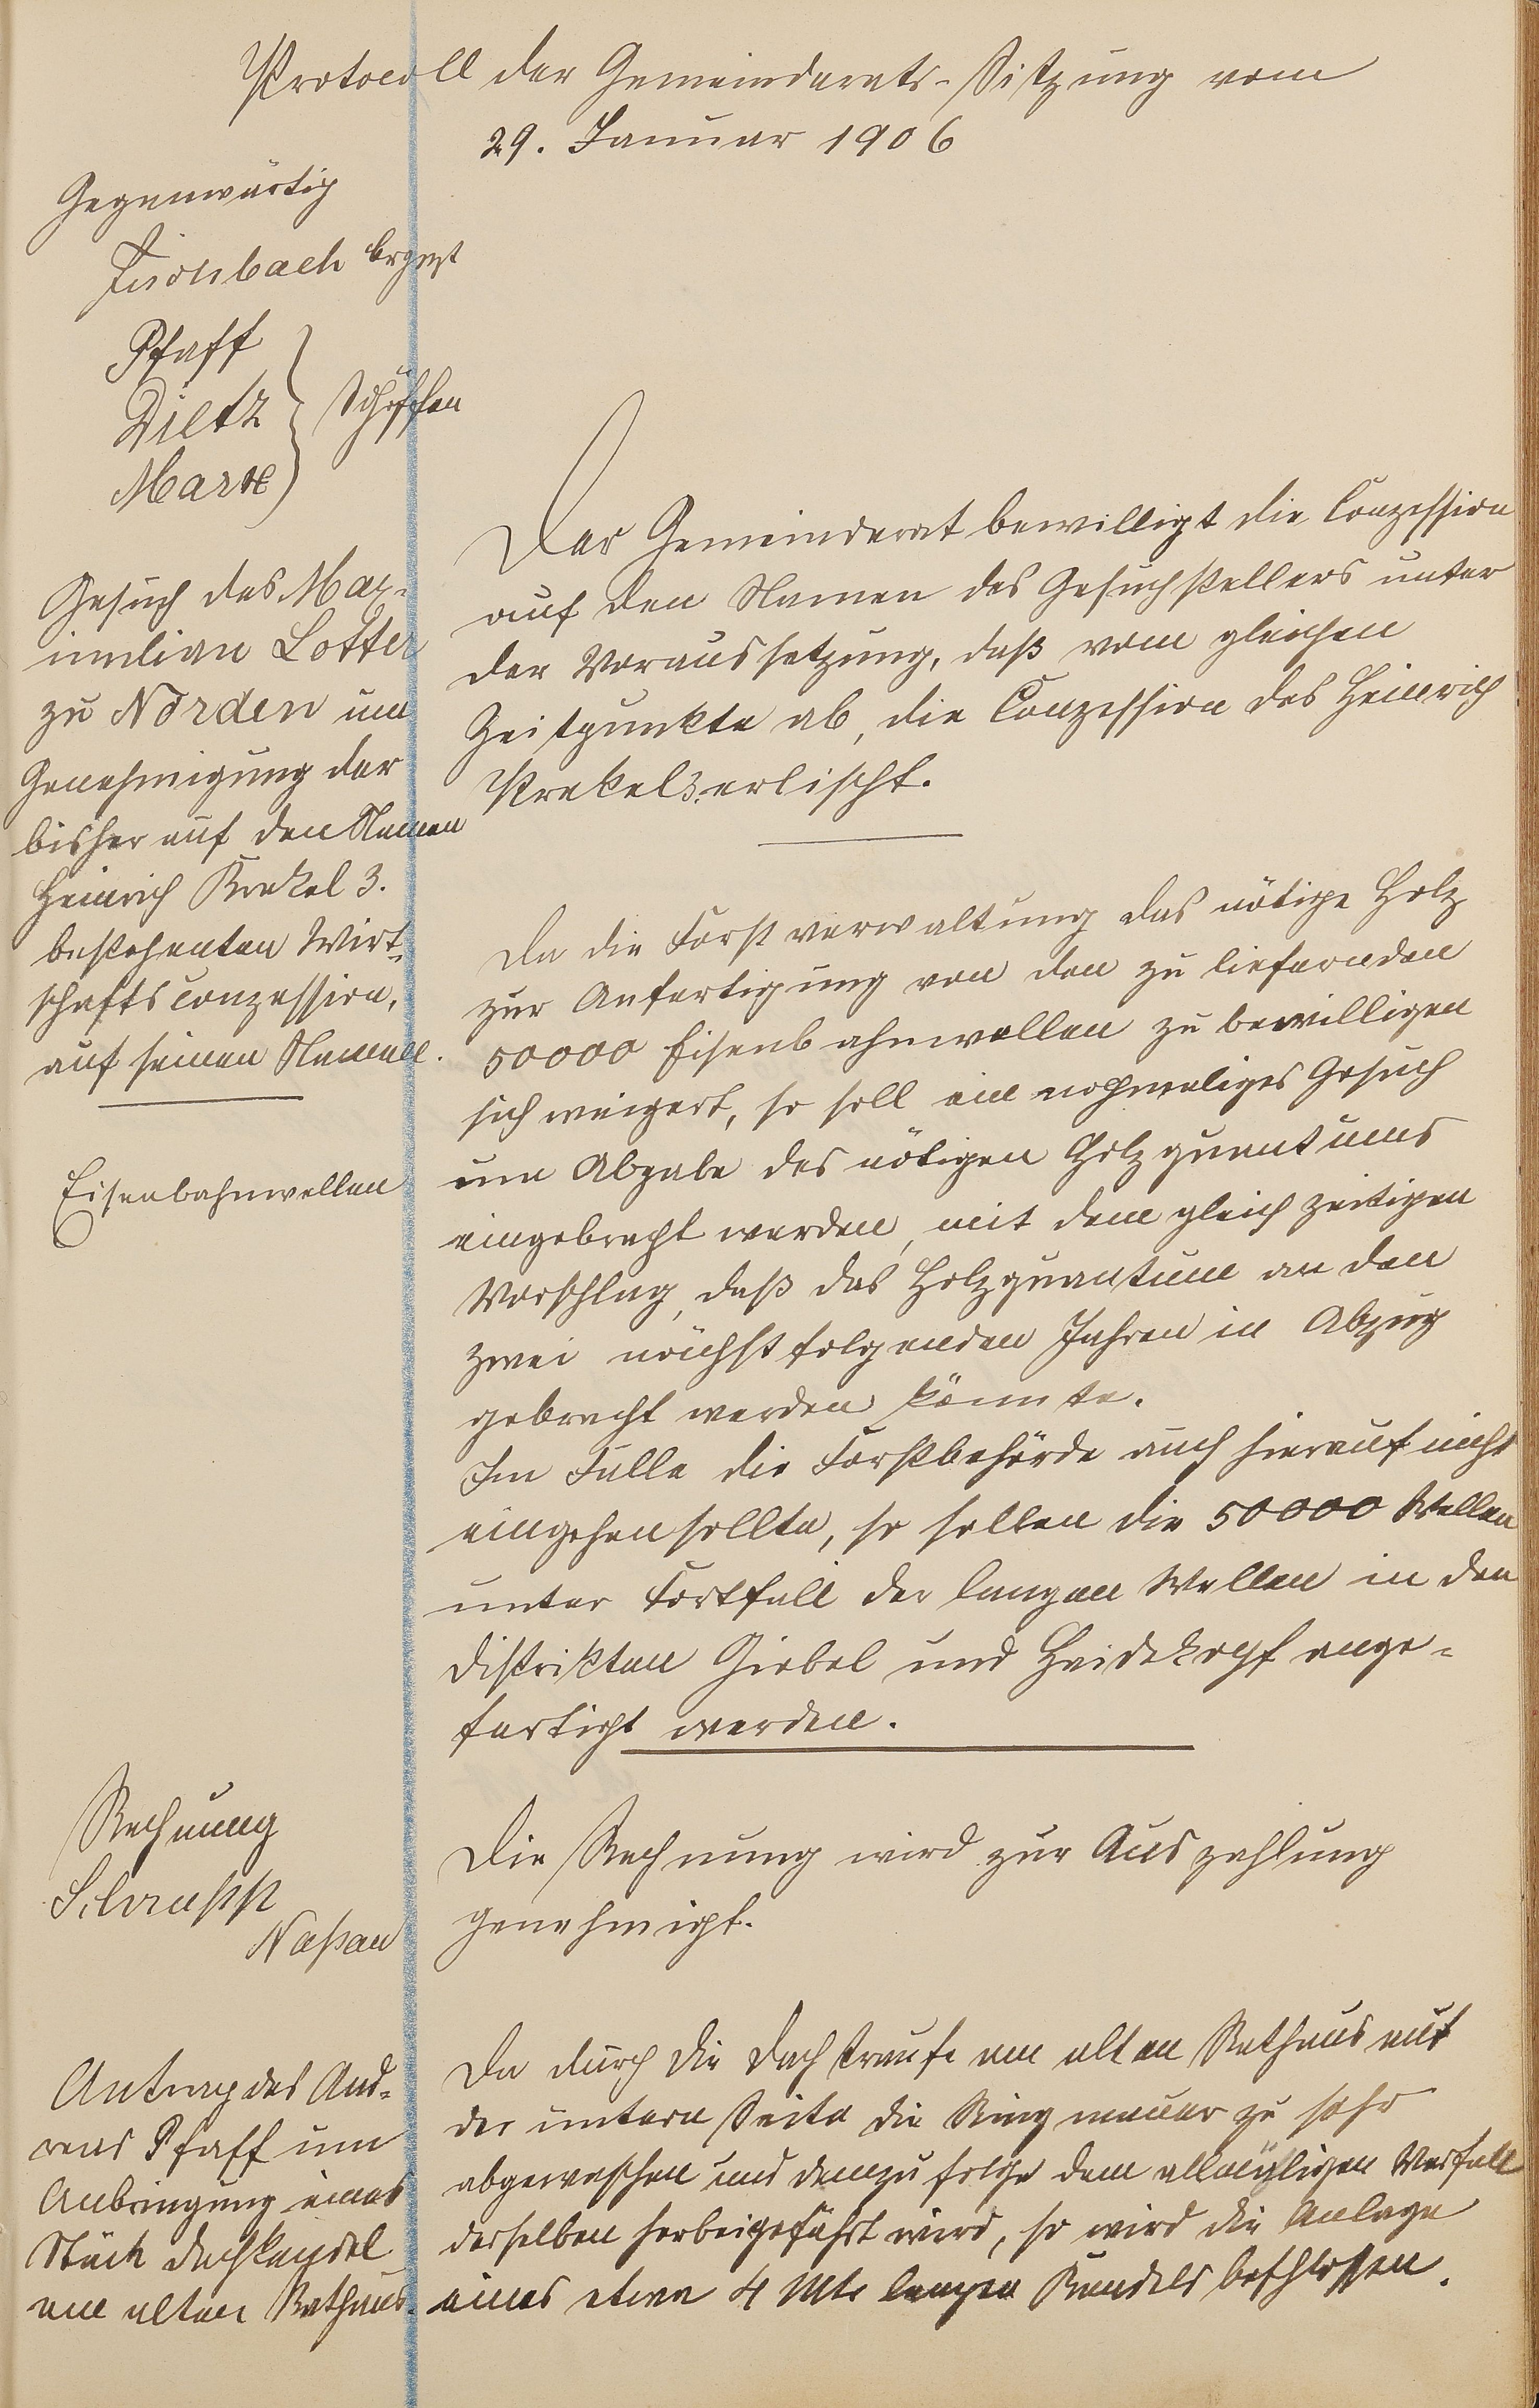 Protocoll der Gemeinderats-Sitzung vom
29. Januar 1906
Gegenwärtig
Fischbach Brgmst
Pfaff
Dietz
Marx
Schöffen
Gesuch des Max-
imilian Lotter
zu Norden um
Genehmigung der
bisher auf den Namen
Heinrich Krekel 3.
bestehenten Wirt-
schaftsconzession,
auf seinen Namen.
Der Gemeinderat bewilligt die Conzession
auf den Namen des Gesuchstellers unter
der Voraussetzung, daß vom gleichen
Zeitpunkte ab, die Conzession des Heinrich
Krekel 3. erlischt.
Eisenbahnwellen
Da die Forstverwaltung das nötige Holz
zur Anfertigung von den zu liefernden
50000 Eisenbahnwellen zu bewilligen
sich weigert, so soll ein nochmaliges Gesuch
um Abgabe des nötigen Holzquantums
eingebracht werden, mit dem gleichzeitigen
Vorschlag, daß das Holzquantum an den
zwei nächstfolgenden Jahren in Abzug
gebracht werden könnte.
Im Falle die Forstbehörde auch hierauf nicht
eingehen sollte, so sollen die 50000 Wellen
unter Fortfall der langen Wellen in den
Distrikten Giebel und Heidekopf ange-
fertigt werden.
Rechnung
Schrupp
Naßau
Die Rechnung wird zur Auszahlung
genehmigt.
Antrag des And-
reas Pfaff um
Anbringung eines
Stück Dachkandel
am alten Rathaus.
Da durch die Dachtraufe am alten Rathaus auf
der untern Seite die Ringmauer zu sehr
abgewaschen und demzufolge dem allmähligen Verfall
derselben herbeigeführt wird, so wird die Anlage
eines etwa 4 Mtr langen Kandels beschlossen.